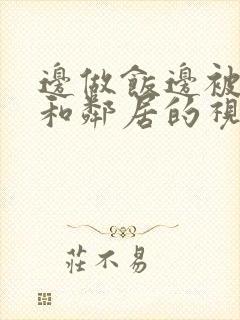 邊做飯邊被
和鄰居的視
莊不易